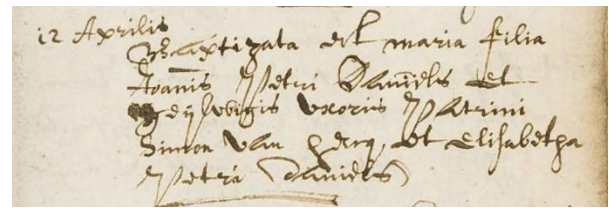 12 Aprilis
Baptizata est maria filia
Joannis Petri Daniels et
Heijlwigis uxoris Patrini
Simon Van herq, et Elisabetha
Petri Daniels